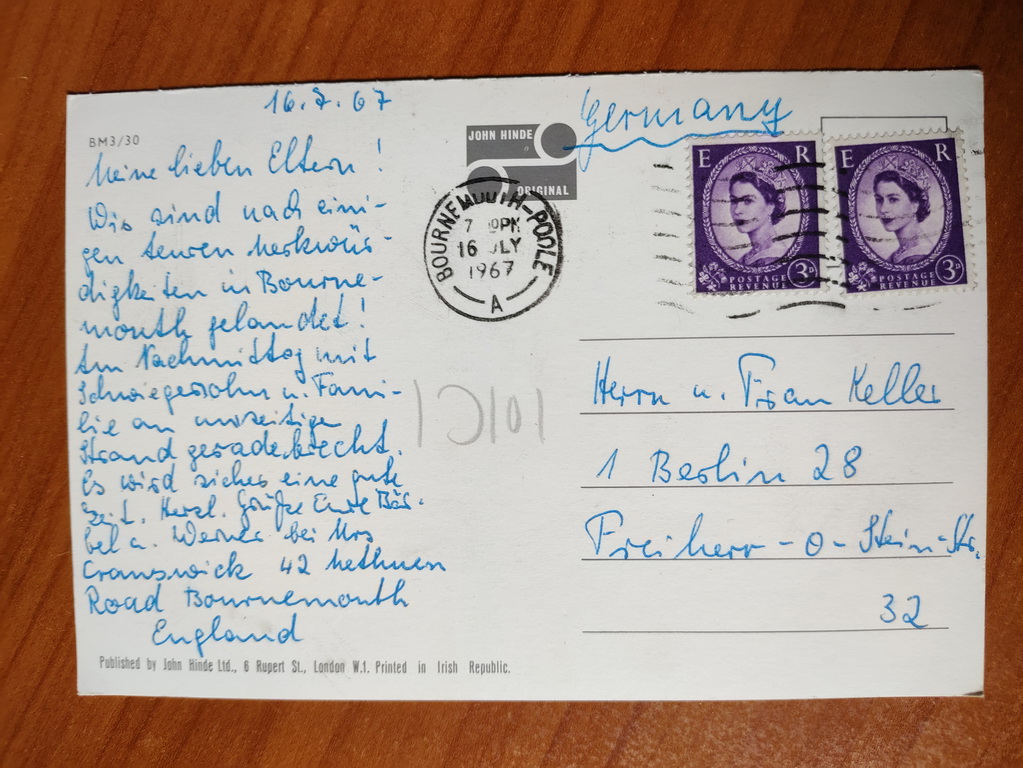 16.7.67
BM3/30
Meine lieben Eltern!
Wir sind nach eini-
gen teuren Merkwür-
digkeiten in Bourne-
mouth gelandet!
Am Nachmittag mit
Schwiegersohn u. Fami-
lie am
Strand geradebrecht.
Es wird sicher eine gute
Zeit. Herzl. Grüße Eure Bär-
bel u. Werner bei Mrs
Cranswick 42 Methuen
Road Bournemouth
England
Published by John Hinde Ltd., 6 Rupert St., London W.1. Printed in Irish Republic.
JOHN HINDE
ORIGINAL
Germany
BOURNEMOUTH-POOLE
16 JLY
1967
A
E R
POSTAGE
REVENUE
3D
E R
POSTAGE
REVENUE
3D
Herrn u. Frau Keller
1 Berlin 28
Freiherr-v-Stein-Str.
32